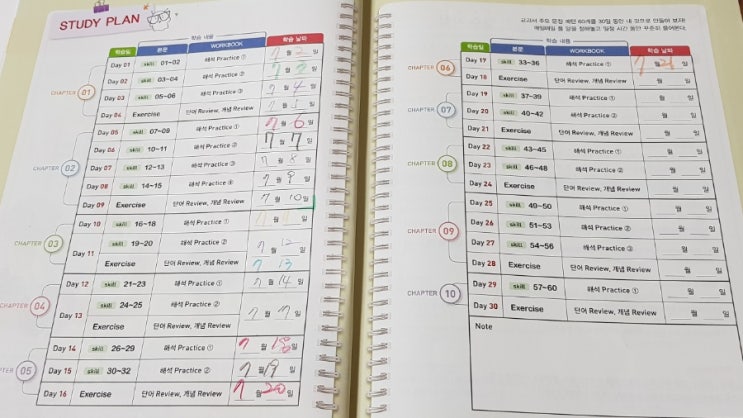 STUDY PLAN
학습일 본문 학습 내용 WORKBOOK 학습 날짜
CHAPTER 01
Day 01 skill 01~02 해석 Practice ① 7월 2일
Day 02 skill 03~04 해석 Practice ② 7월 3일
Day 03 skill 05~06 해석 Practice ③ 7월 4일
Day 04 Exercise 단어 Review, 개념 Review 7월 5일
CHAPTER 02
Day 05 skill 07~09 해석 Practice ① 7월 6일
Day 06 skill 10~11 해석 Practice ② 7월 7일
Day 07 skill 12~13 해석 Practice ③ 7월 8일
Day 08 skill 14~15 해석 Practice ④ 7월 9일
Day 09 Exercise 단어 Review, 개념 Review 7월 10일
CHAPTER 03
Day 10 skill 16~18 해석 Practice ① 월 일
Day 11 skill 19~20 해석 Practice ② 7월 12일
Exercise 단어 Review, 개념 Review 7 13
CHAPTER 04
Day 12 skill 21~23 해석 Practice ① 7월 14일
Day 13 skill 24~25 해석 Practice ② 7월 일
Exercise 단어 Review, 개념 Review
CHAPTER 05
Day 14 skill 26~29 해석 Practice ① 7월 18일
Day 15 skill 30~32 해석 Practice ② 7월 19일
Day 16 Exercise 단어 Review, 개념 Review 7월 20일
학습일 본문 학습 내용 WORKBOOK 학습 날짜
CHAPTER 06
Day 17 skill 33~36 해석 Practice ① 7월 21일
Day 18 Exercise 단어 Review, 개념 Review 월 일
CHAPTER 07
Day 19 skill 37~39 해석 Practice ① 월 일
Day 20 skill 40~42 해석 Practice ② 월 일
Day 21 Exercise 단어 Review, 개념 Review 월 일
CHAPTER 08
Day 22 skill 43~45 해석 Practice ① 월 일
Day 23 skill 46~48 해석 Practice ② 월 일
Day 24 Exercise 단어 Review, 개념 Review 월 일
CHAPTER 09
Day 25 skill 49~50 해석 Practice ① 월 일
Day 26 skill 51~53 해석 Practice ② 월 일
Day 27 skill 54~56 해석 Practice ③ 월 일
Day 28 Exercise 단어 Review, 개념 Review 월 일
CHAPTER 10
Day 29 skill 57~60 해석 Practice ① 월 일
Day 30 Exercise 단어 Review, 개념 Review 월 일
Note